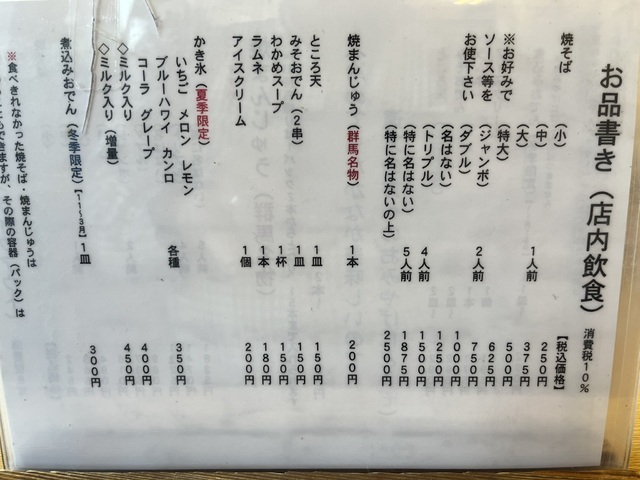 お品書き（店内飲食） 消費税10%
【税込価格】
焼そば （小） 250円
（中） 1人前 375円
（大） 500円
※お好みで （特大） 625円
ソース等を （ジャンボ） 2人前 750円
お使下さい （ダブル） 1000円
（名はない） 1250円
（トリプル） 4人前 1500円
（特に名はない） 5人前 1875円
（特に名はないの上） 2500円
焼まんじゅう（群馬名物） 1本 200円
ところ天 1皿 150円
みそおでん（2串） 1皿 150円
わかめスープ 1杯 150円
ラムネ 1本 180円
アイスクリーム 1個 200円
かき氷（夏季限定）
いちご メロン レモン 各種 350円
ブルーハワイ カンロ
コーラ グレープ
◇ミルク入り 400円
◇ミルク入り（増量） 450円
煮込みおでん（冬季限定）【11～3月】1皿 300円
※食べきれなかった焼そば・焼まんじゅうは
できますが、その際の容器（パック）は